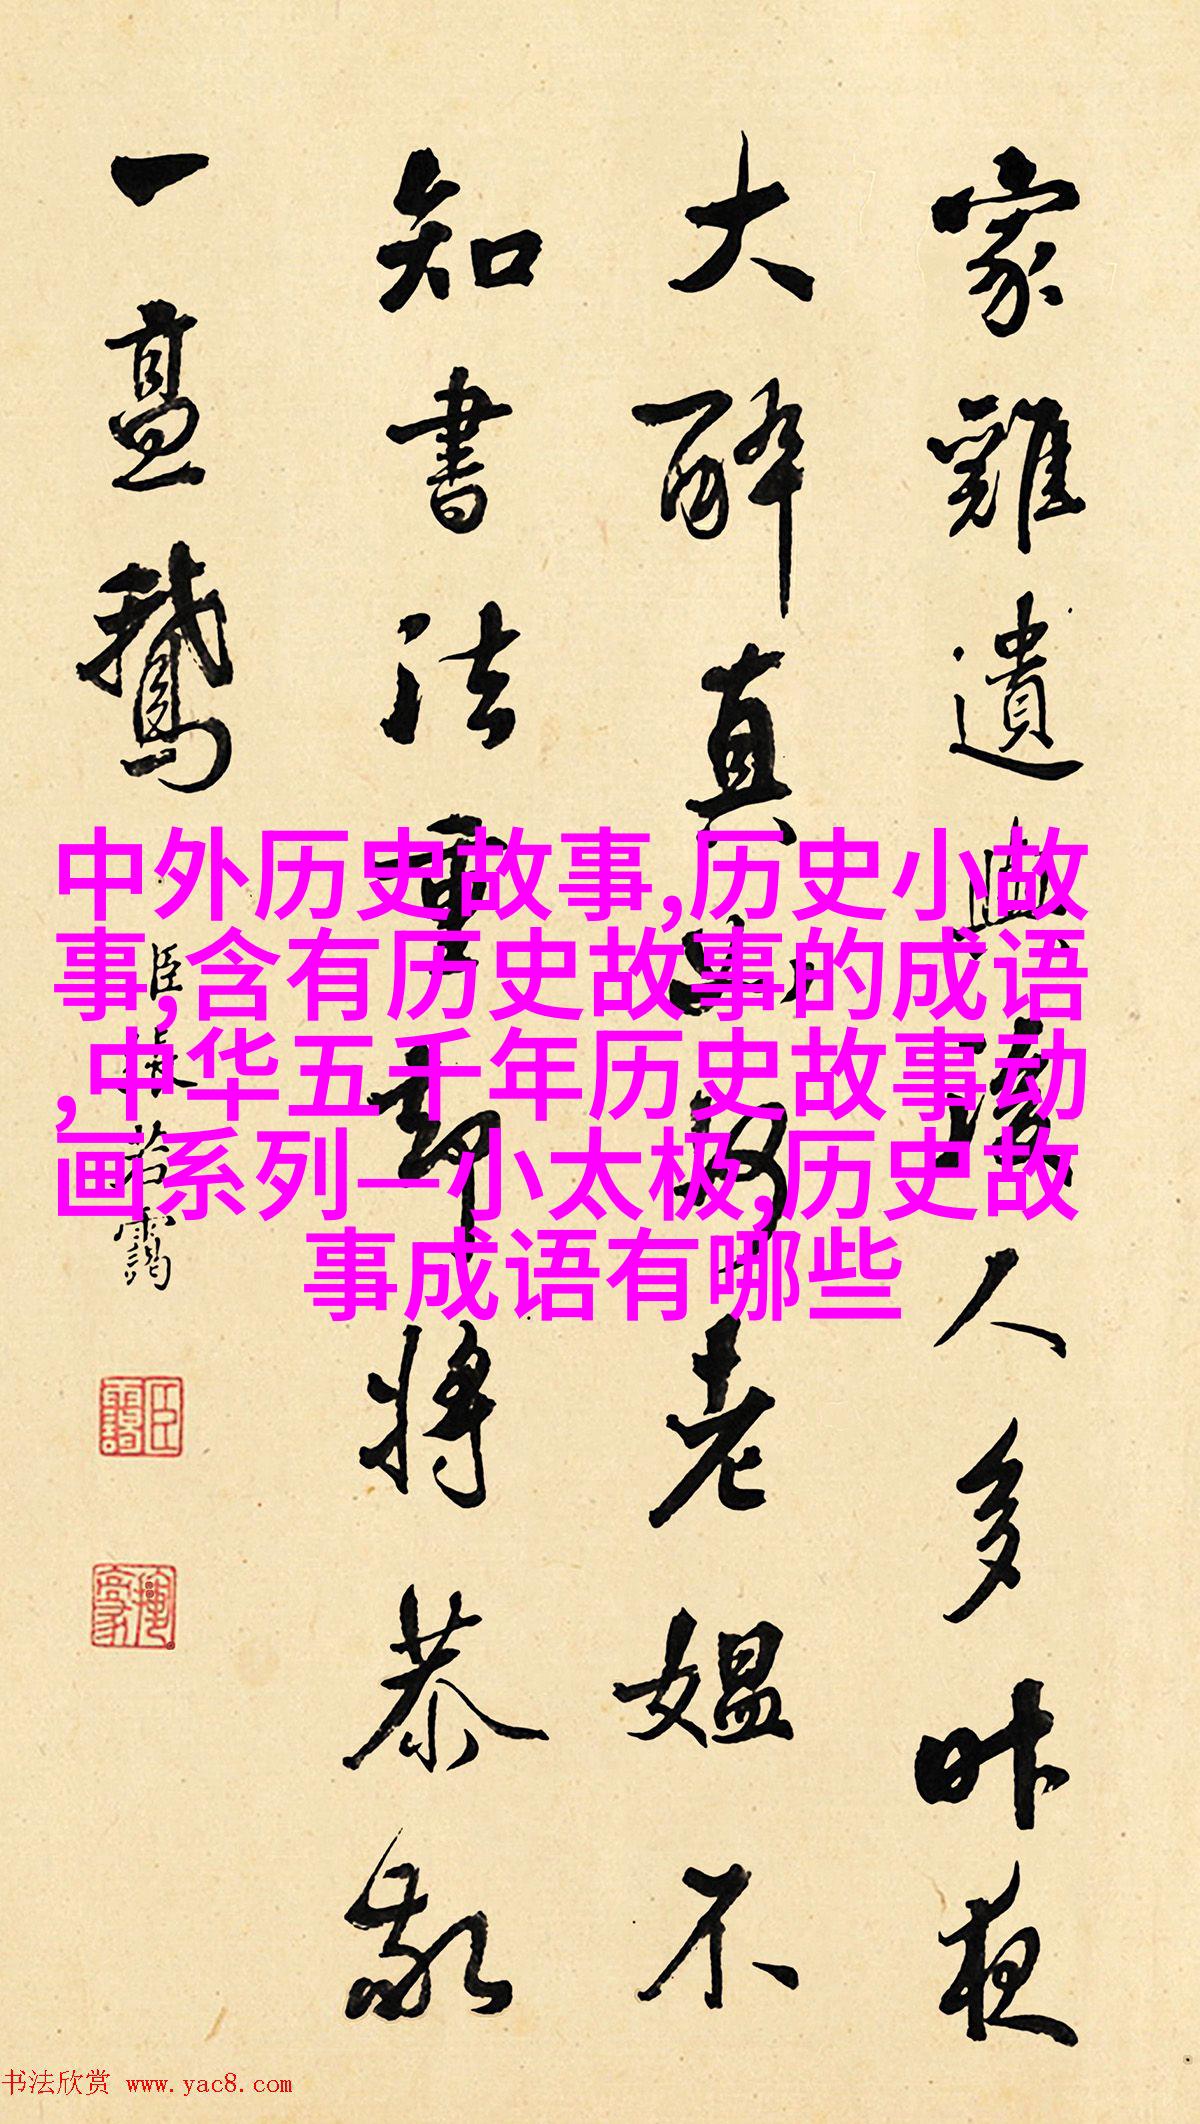 家雞遺人多昨夜
大醉真老媼不
知書法重却将恭敬
一鵝
臣張若靄
中外历史故事,历史小故
事,含有历史故事的成语
,中华五千年历史故事动
画系列—小太极,历史故
事成语有哪些
书法欣赏 www.yac8.com